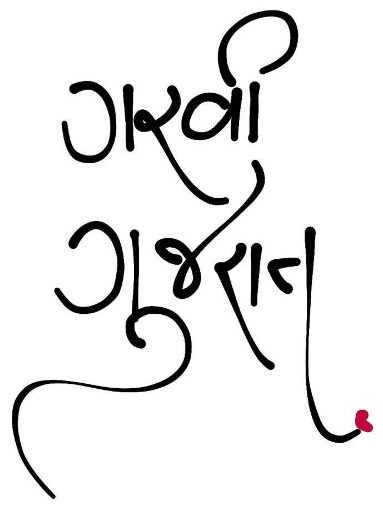 ગરવી
ગુજરાત